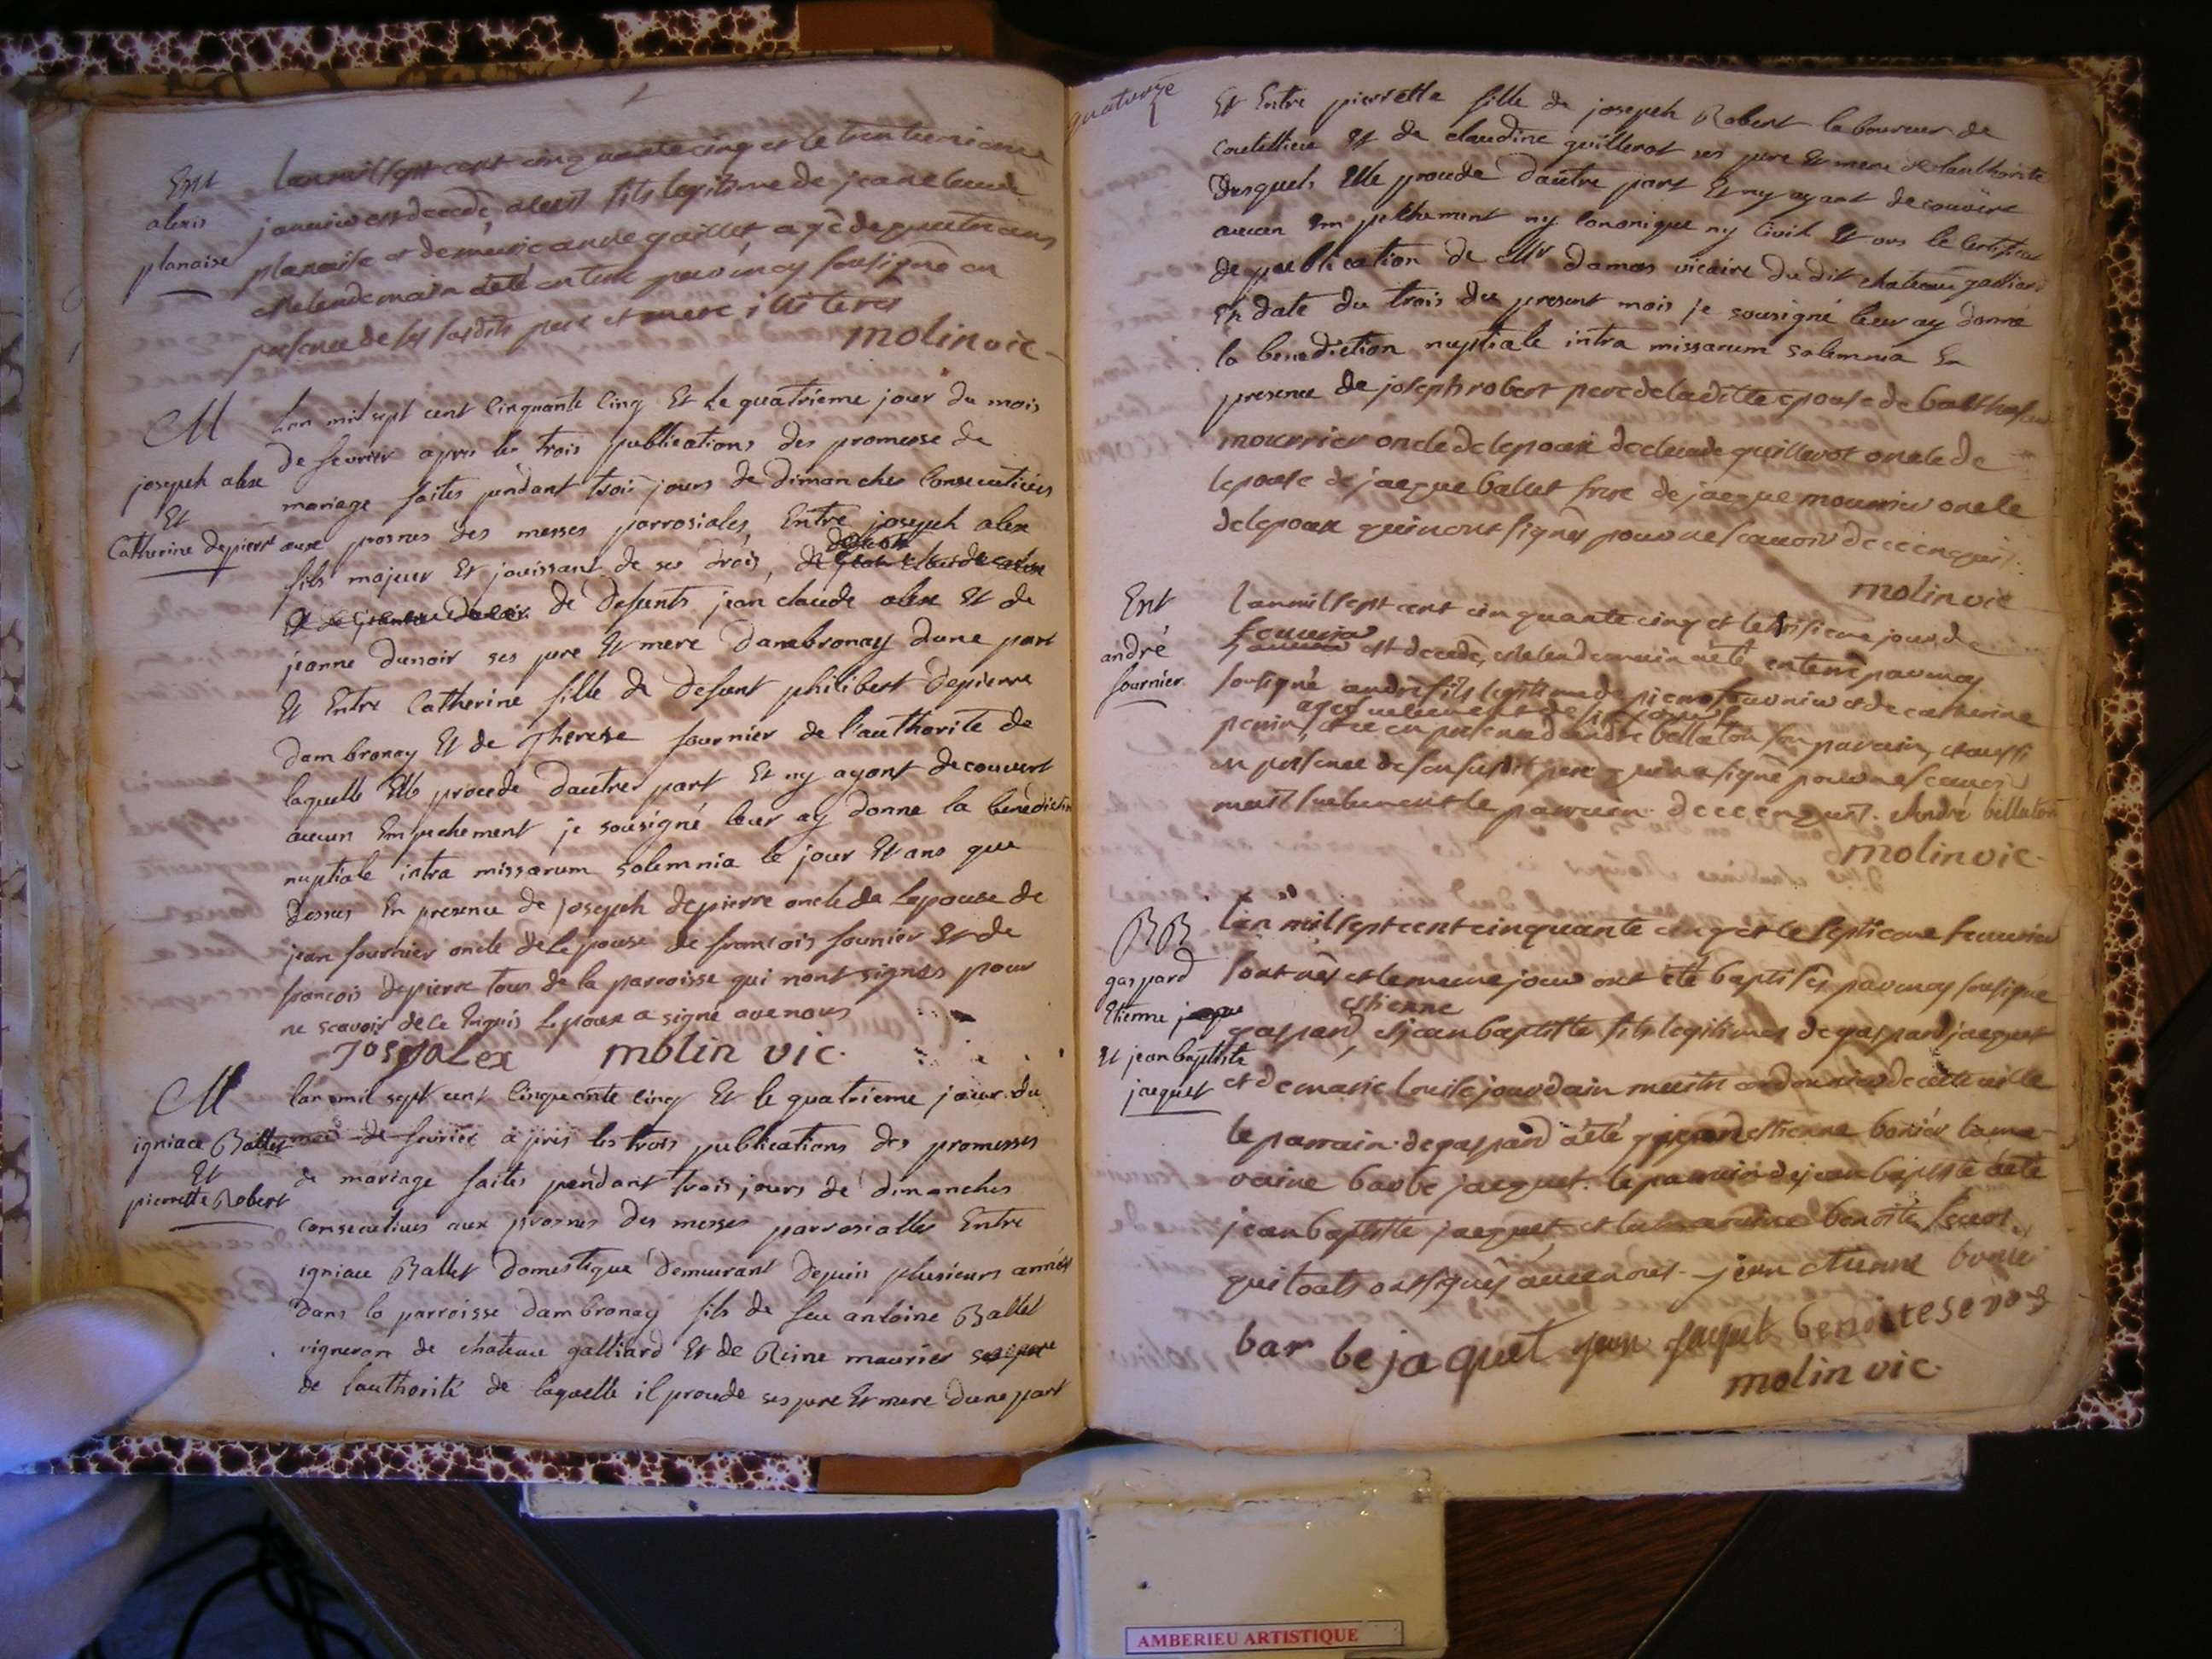 Ent
alexis
planaise
Lan mil sept cent cinquante cinq et le trentunieme
janvier est decedé, alexis fils legitime de jean claude
planaise et de marie anne gaillet agé de quatre ans
et le lendemain a été enterré par moy sousigné en
presence de ses susdits pere et mere illiteres
molin vic
M
joseph alex
Et
Catherine depierre
Lan mil sept cent Cinquante Cinq Et Le quatrieme jour du mois
de fevrier apres les trois publications des promesse de
mariage faites pendant trois jours de dimanches Consecutives
aux prosnes des messes parrosiales, Entre joseph alex
fils majeur Et jouissant de ses drois, de
de defunts jean claude alex Et de
jeanne dunoir ses pere Et mere Dambronay dune part
Et Entre Catherine fille de defunt philibert Depierre
Dambronay Et de Therese fournier de l'authorite de
laquelle Elle procede dautres part Et ny ayant decouvert
aucun Empechement je sousigné leur ay donne la benediction
nuptiale intra missarum solemnia le jour Et ans que
dessus En presence de joseph depierre oncle de Lepouse de
jean fournier oncle de Lepouse de francois founier Et de
francois depierre tous de la parroisse qui nont signés pour
ne scavoir de ce Enquis Lepoux a signé avenous
Josep alex molin vic.
M
igniace Ballet
Et
pierrette Robert
lan mil sept cent Cinquante Cinq Et le quatrieme jour du
mois de fevrier apres les trois publications des promesses
de mariage faites pendant trois jours de dimanches
consecutives aux prosnes des messes parrosialles Entre
igniace Ballet domestique demeurant depuis plusieurs années
Dans la parroisse dambronay fils de feu antoine Ballet
vigneron de chateau galliard Et de Reine maurier
de lauthorité de laquelle il procede ses pere Et mere dune part
quatorze
Et Entre pierrette fille de joseph Robert laboureur de
Coutellieu Et de claudine guillerot ses pere Et mere de lauthorité
desquels Elle procede dautre part Et ny ayant decouvert
aucun Empechement ny Canonique ny Civil Et vus le Certificat
de publication de Mr damas vicaire du dit chateau galliard
En date du trois du present mois je sousigné leur ay donné
la benediction nuptiale intra missarum solemnia En
presence de joseph robert pere de la ditte epouse de balthasar
mourrier oncle de lepoux de claude guillerot oncle de
lepouse de jacque ballet frere de jacque mourrier oncle
de lepoux qui nont signés pour ne scavoir de ce enquis.
molin vic
Ent
andré
fournier
Lan mil sept cent cinquante cinq et le troisieme jour de
fevrier est decedé, et le lendemain a été enterré par moy
sousigné andré fils legitime de pierre fournier et de catherine
perrin, et ce en presence d'andré bellaton son parrain, et aussi
en presence de son susdit pere qui na signé pour ne scavoir
mais seulement le parrain de ce enquis. André bellaton
molin vic.
BB
gaspard
Etienne
Et jean baptiste
jacquet
Lan mil sept cent cinquante cinq et le septieme fevrier
sont nés et le meme jour ont été baptisés par moy sousigné
estienne
gaspard, et jean baptiste fils legitimes de gaspard jacquet
et de marie louise jourdain maitre cordonnier de cette ville
le parrain de gaspard a été jean estienne bonier la ma-
raine barbe jacquet. le parrain de jean baptiste a été
jean baptiste jacquet, et la maraine benoite
qui touts ont signés avec nous. jean etienne
bar be jaquet jean jaquet benoite servoz
molin vic.
AMBERIEU ARTISTIQUE